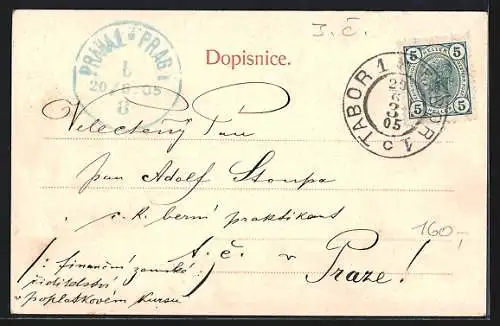 J. Č.
PRAHA 1 PRAG 1
Dopisnice.
1
20/8.05
8
TABOR 1 TABOR 1
20
8
05
C
5 5
5 5
Velectěný Pan
pan Adolf Stoupa
c. k. berní praktikant
t. č. v
Praze!
/: finanční zemské :/
ředitelství
v poplatkovém kursu
160,-